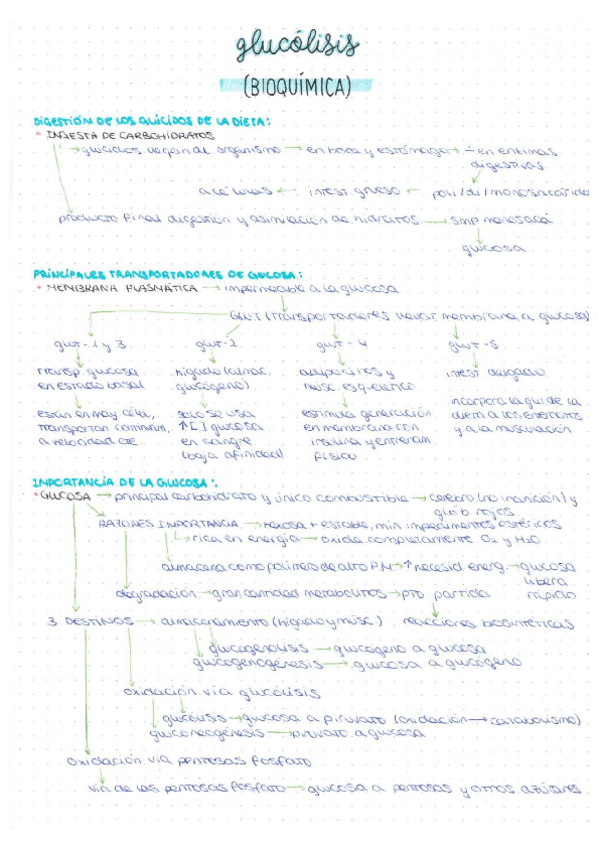 glucólisis
(BIOQUÍMICA)
DIGESTIÓN DE LOS GLÚCIDOS DE LA DIETA:
* INGESTA DE CARBOHIDRATOS
→ glúcidos llegan al organismo → en boca y estómago → en enzimas
digestivas
a células ← intest. grueso ← poli/di/monosacárido
producto final digestión y asimilación de hidratos → smp monosacá
glucosa
PRINCIPALES TRANSPORTADORES DE GLUCOSA:
* MEMBRANA PLASMÁTICA → impermeable a la glucosa
GLUT (transportadores llevar membrana a glucosa)
glut-1 y 3 glut-2 glut-4 glut-5
transp glucosa hígado (almac. adipocitos y intest delgado
en estado basal glucógeno) músc. esquelético
están en may célu, solo se usa estimula generación incorpora la glu de la
transportan continuam. ↑[ ] glucosa en membrana con dieta a los
a velocidad cte en sangre insulina y entrenam. y a la musculación
(baja afinidad) físico
IMPORTANCIA DE LA GLUCOSA:
* GLUCOSA → principal carbohidrato y único combustible → cerebro (no inanición) y
glób. rojos
RAZONES IMPORTANCIA → hexosa + estable, min impedimentos estéricos
→ rica en energía → oxida completamente O2 y H2O
almacena como polímero de alto P.M → ↑ necesid energ. → glucosa
libera
degradación → gran cantidad metabolitos → pto partida rápido
3 DESTINOS → almacenamiento (hígado y músc) reacciones biosintéticas
glucogenolisis → glucógeno a glucosa
glucogenogénesis → glucosa a glucógeno
oxidación vía glucólisis
glucólisis → glucosa a piruvato (oxidación → catabolismo)
gluconeogénesis → piruvato a glucosa
oxidación vía pentosas fosfato
vía de las pentosas fosfato → glucosa a pentosas y otros azúcares